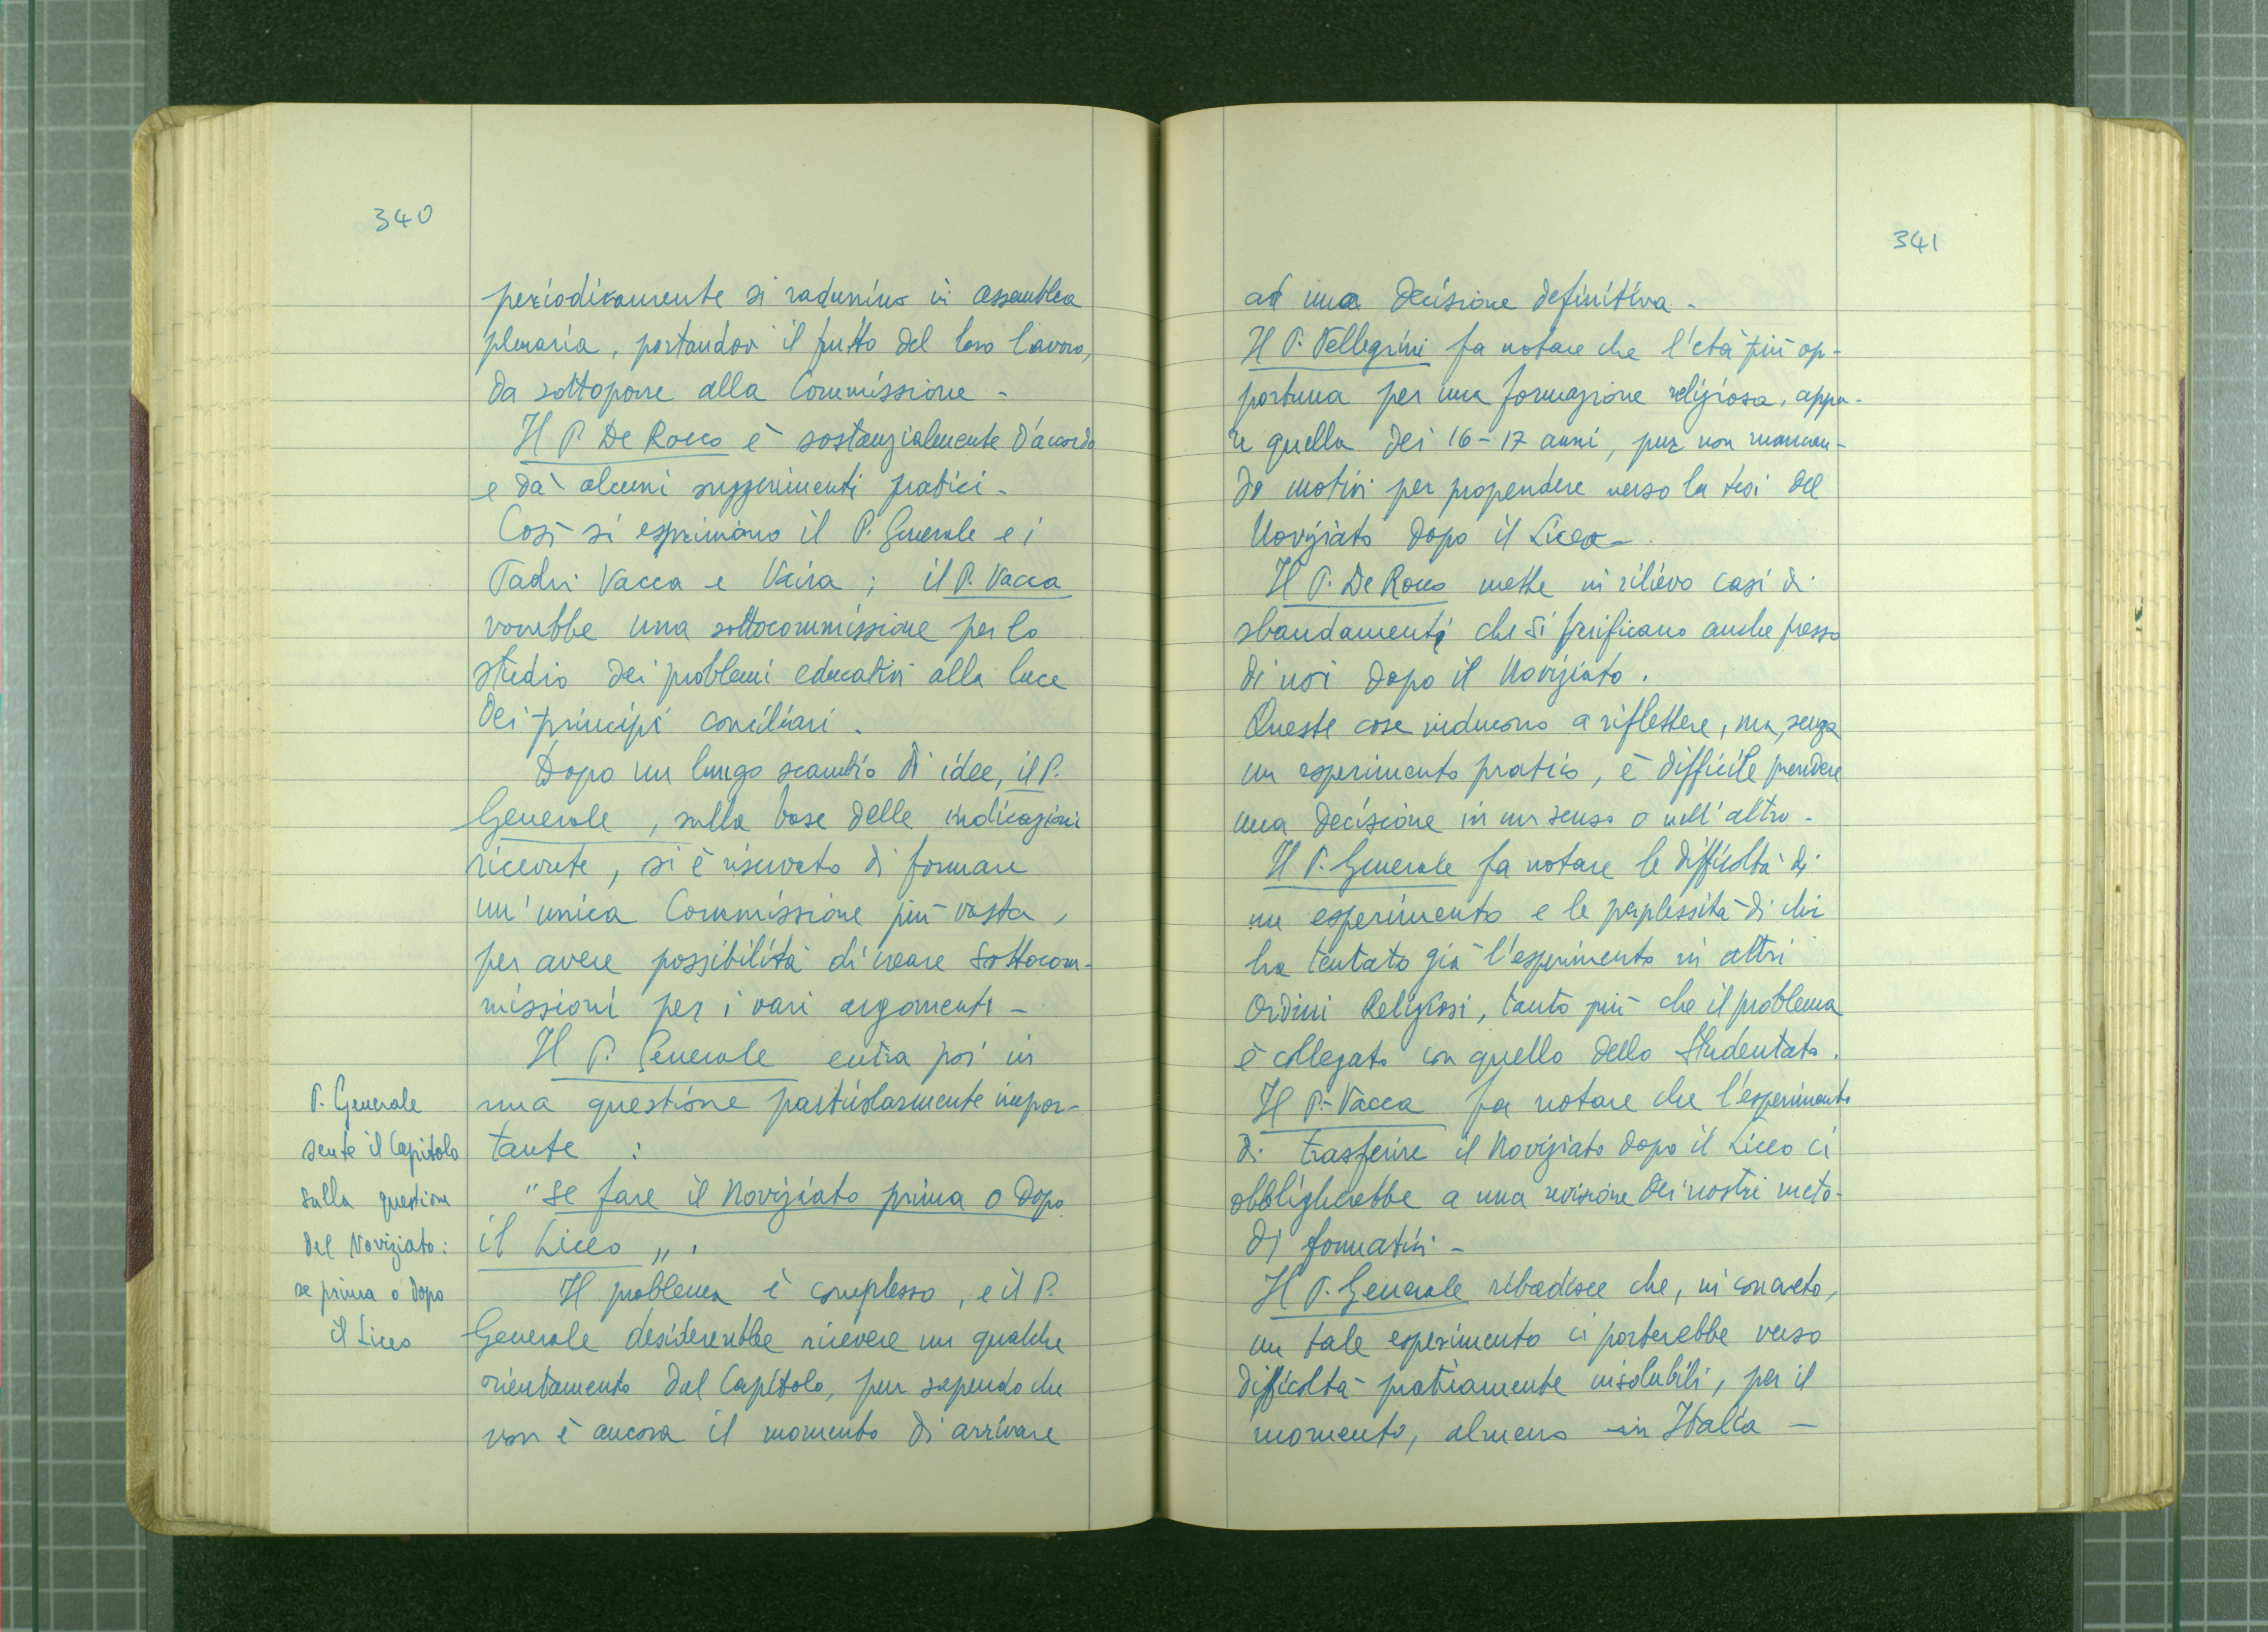 340
periodicamente si radunino in assemblea
plenaria, portandovi il frutto del loro lavoro,
da sottoporre alla Commissione -
Il P. De Rocco è sostanzialmente d'accordo
e dà alcuni suggerimenti pratici -
Così si esprimono il P. Generale e i
Padri Vacca e Vaira ; il P. Vacca
vorrebbe una sottocommissione per lo
studio dei problemi educativi alla luce
dei principi conciliari .
Dopo un lungo scambio di idee, il P.
Generale , sulla base delle indicazioni
ricevute, si è riservato di formare
un'unica Commissione più vasta,
per avere possibilità di creare Sottocom-
missioni per i vari argomenti -
Il P. Generale entra poi in
una questione particolarmente impor-
tante :
"se fare il Noviziato prima o dopo
il Liceo„ .
Il problema è complesso, e il P.
Generale desidererebbe ricevere un qualche
orientamento dal Capitolo, pur sapendo che
non è ancora il momento di arrivare
P. Generale
sente il Capitolo
sulla questione
del Noviziato:
se prima o dopo
il Liceo
341
ad una decisione definitiva -
Il P. Pellegrini fa notare che l'età più op-
portuna per una formazione religiosa, appa-
re quella dei 16-17 anni, pur non mancan-
do motivi per propendere verso la tesi del
Noviziato dopo il Liceo -
Il P. De Rocco mette in rilievo casi di
sbandamenti che si verificano anche presso
di noi dopo il Noviziato .
Queste cose inducono a riflettere, ma, senza
un esperimento pratico, è difficile prendere
una decisione in un senso o nell'altro -
Il P. Generale fa notare le difficoltà di
un esperimento e le perplessità di chi
ha tentato già l'esperimento in altri
Ordini Religiosi, tanto più che il problema
è collegato con quello dello Studentato .
Il P. Vacca fa notare che l'esperimento
di trasferire il Noviziato dopo il Liceo ci
obbligherebbe a una revisione dei nostri meto-
di formativi -
Il P. Generale ribadisce che, in concreto,
un tale esperimento ci porterebbe verso
difficoltà praticamente insolubili, per il
momento, almeno in Italia -